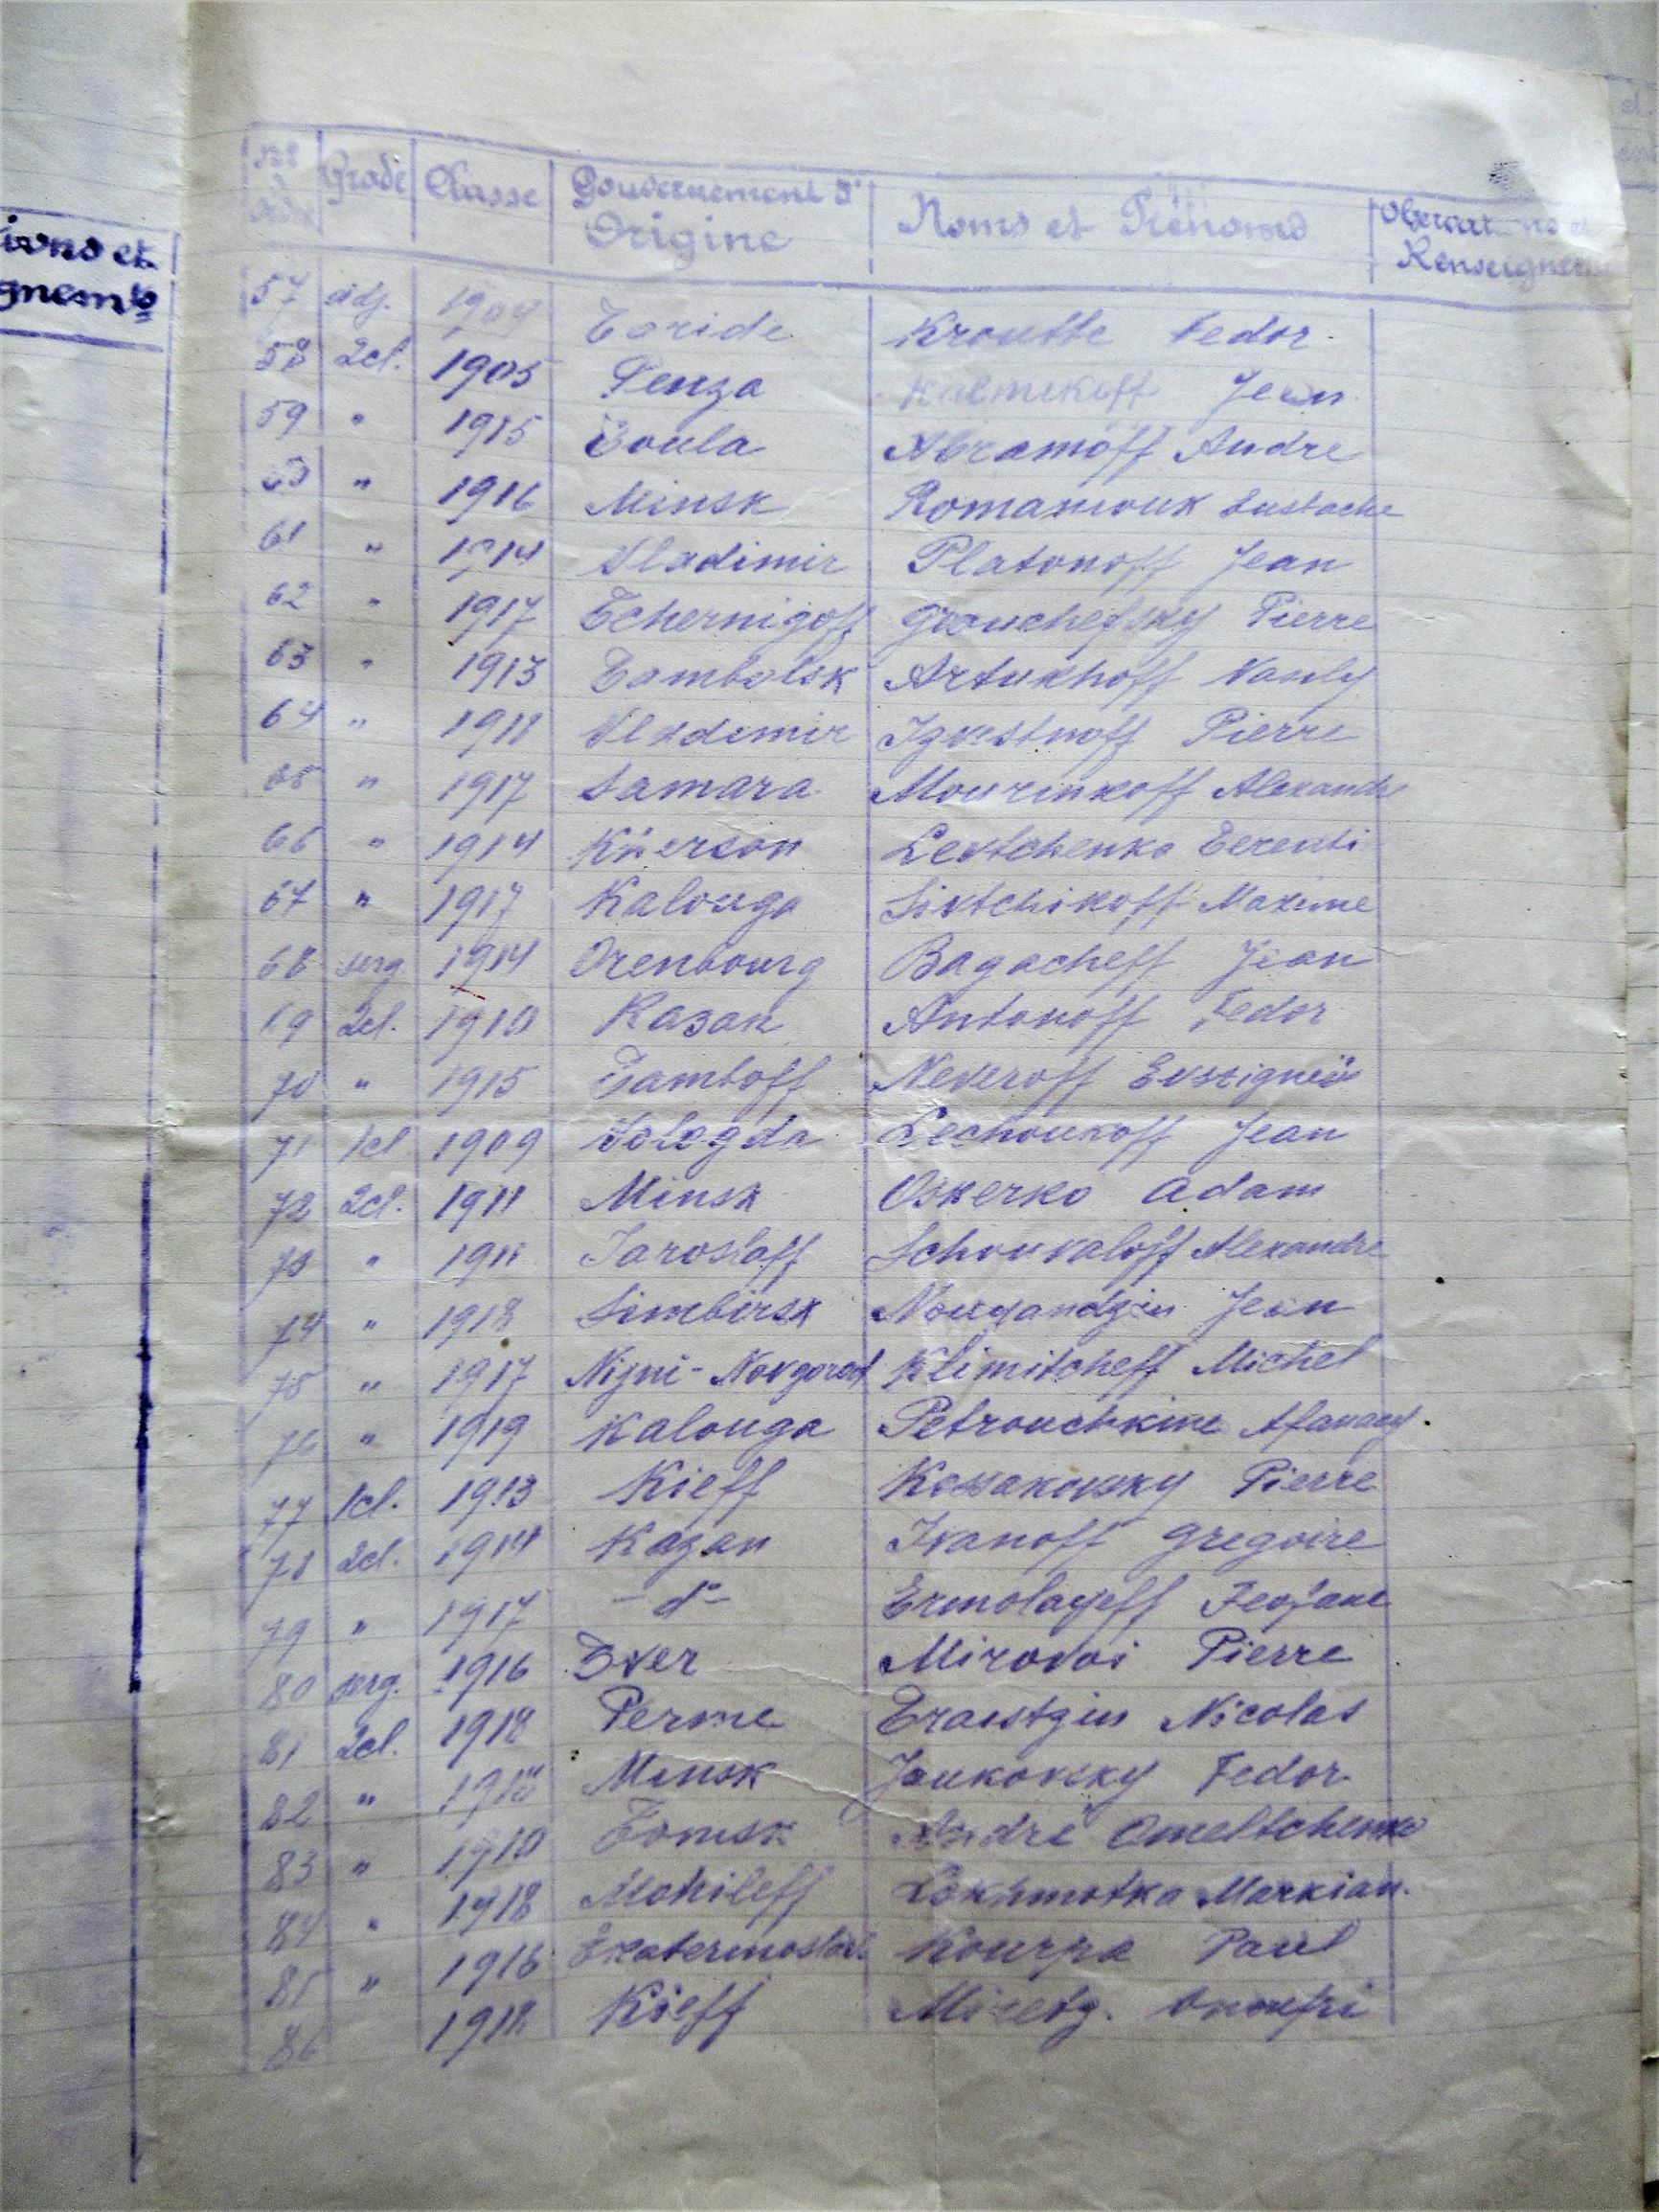 ions et
gnemts
Nos d'Ordre Grade Classe Gouvernement d' Origine Noms et Prénoms Observations et Renseignem
57 adj. Tauride Kroutte Fedor
58 2cl. 1905 Penza Kalmikoff Jean
59 " 1915 Toula Abramoff Andre
60 " 1916 Minsk Romaniouk Eustache
61 " 1914 Vladimir Platonoff Jean
62 " 1917 Tchernigoff Pierre
63 " 1913 Tambolsk Artukhoff
64 " 1918 Vladimir Izvestnoff Pierre
65 " 1917 Samara Mourinkoff Alexandre
66 " 1914 Kherson Levtchenko Terenti
67 " 1917 Kalouga Sivtchikoff Maxime
68 serg 1914 Orenbourg Bagacheff Jean
69 2cl. 1910 Kazan Antonoff Fedor
70 " 1915 Tamboff Neveroff Evstigneï
71 1cl 1909 Vologda Lechoukoff Jean
72 2cl. 1911 Minsk Oskerko Adam
73 " 1911 Iaroslaff Schouvaloff Alexandre
74 " 1918 Simbirsk Jean
75 " 1917 Nijni-Novgorod Klimitcheff Michel
76 " 1919 Kalouga Petrouchkine Afanacy.
77 1cl. 1913 Kieff Kossakovsky Pierre
78 2cl. 1914 Kazan Ivanoff Gregoire
79 " 1917 - do - Ermolayeff
80 serg. 1916 Tver Mirovoi Pierre
81 2cl. 1918 Perme Nicolas
82 " Minsk Joukovsky Fedor
83 " 1910 Tomsk André Omeltchenko
84 " 1918 Mohileff Lokhmotka Markian.
85 " 1916 Ekaterinoslav Kourpa Paul
86 1918 Kieff Onoufri